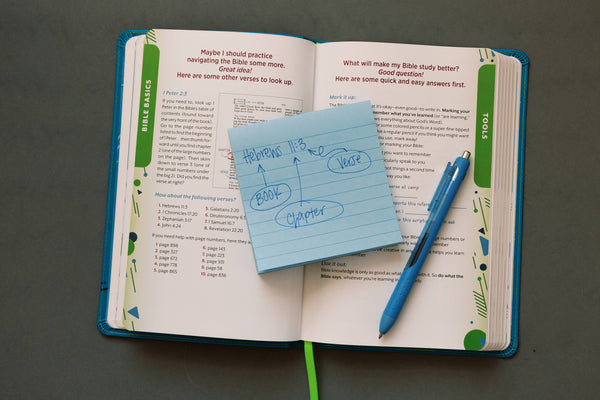 BIBLE BASICS
Maybe I should practice
navigating the Bible some more.
Great idea!
Here are some other verses to look up.
1 Peter 2:3
If you need to, look up 1
Peter in the Bible's table
of contents (found toward
the very front of the book).
Go to the page number
listed to find the beginning
of 1 Peter . . . then thumb for-
ward until you find chapter
2 (one of the large numbers
on the page). Then skim
down to verse 3 (one of
the small numbers under
the big 2). Did you find the
verse at right?
How about the following verses?
1. Hebrews 11:3
2. 1 Chronicles 17:20
3. Zephaniah 3:17
4. John 4:24
5. Galatians 2:20
6. Deuteronomy 6:5
7. 1 Samuel 16:7
8. Revelation 22:20
If you need help with page numbers, here they a
1. page 898
2. page 327
3. page 672
4. page 778
5. page 865
6. page 143
7. page 223
8. page 931
9. page 58
10. page 836
Hebrews 11:3
Verse
BOOK
Chapter
What will make my Bible study better?
Good question!
Here are some quick and easy answers first.
Mark it up:
The B
it's okay—even good—to write in. Marking your
member what you've learned (or "are learning,"
ows everything about God's Word).
some colored pencils or a super fine-tipped
e regular pencil if you think you might want
use, mark away!
or marking your Bible:
t you want to remember
cularly speak to you
not things a second time
way you like:
Live it out:
Bible knowledge is only as good as what
with it. So do what the
Bible says, whatever you're learning in
TOOLS